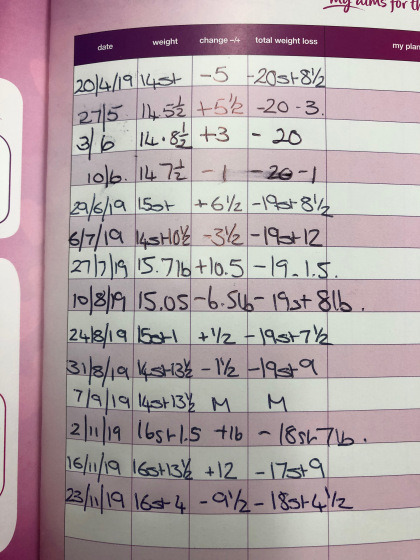 my aims for th
date weight change -/+ total weight loss my plan
20/4/19 14st -5 -20st 8½
27/5 14.5½ +5½ -20-3.
3/6 14.8½ +3 -20
10/6. 14 7½ -1 -20-1
29/6/19 15st +6½ -19st 8½
6/7/19 14st10½ -3½ -19st12
27/7/19 15.7lb +10.5 -19.1.5.
10/8/19 15.05 -6.5lb -19st 8lb.
24/8/19 15st1 +½ -19st7½
31/8/19 14st13½ -1½ -19st9
7/9/19 14st13½ M M
2/11/19 16st1.5 +1b -18st 7lb.
16/11/19 16st13½ +12 -17st9
23/11/19 16st4 -9½ -18st4½